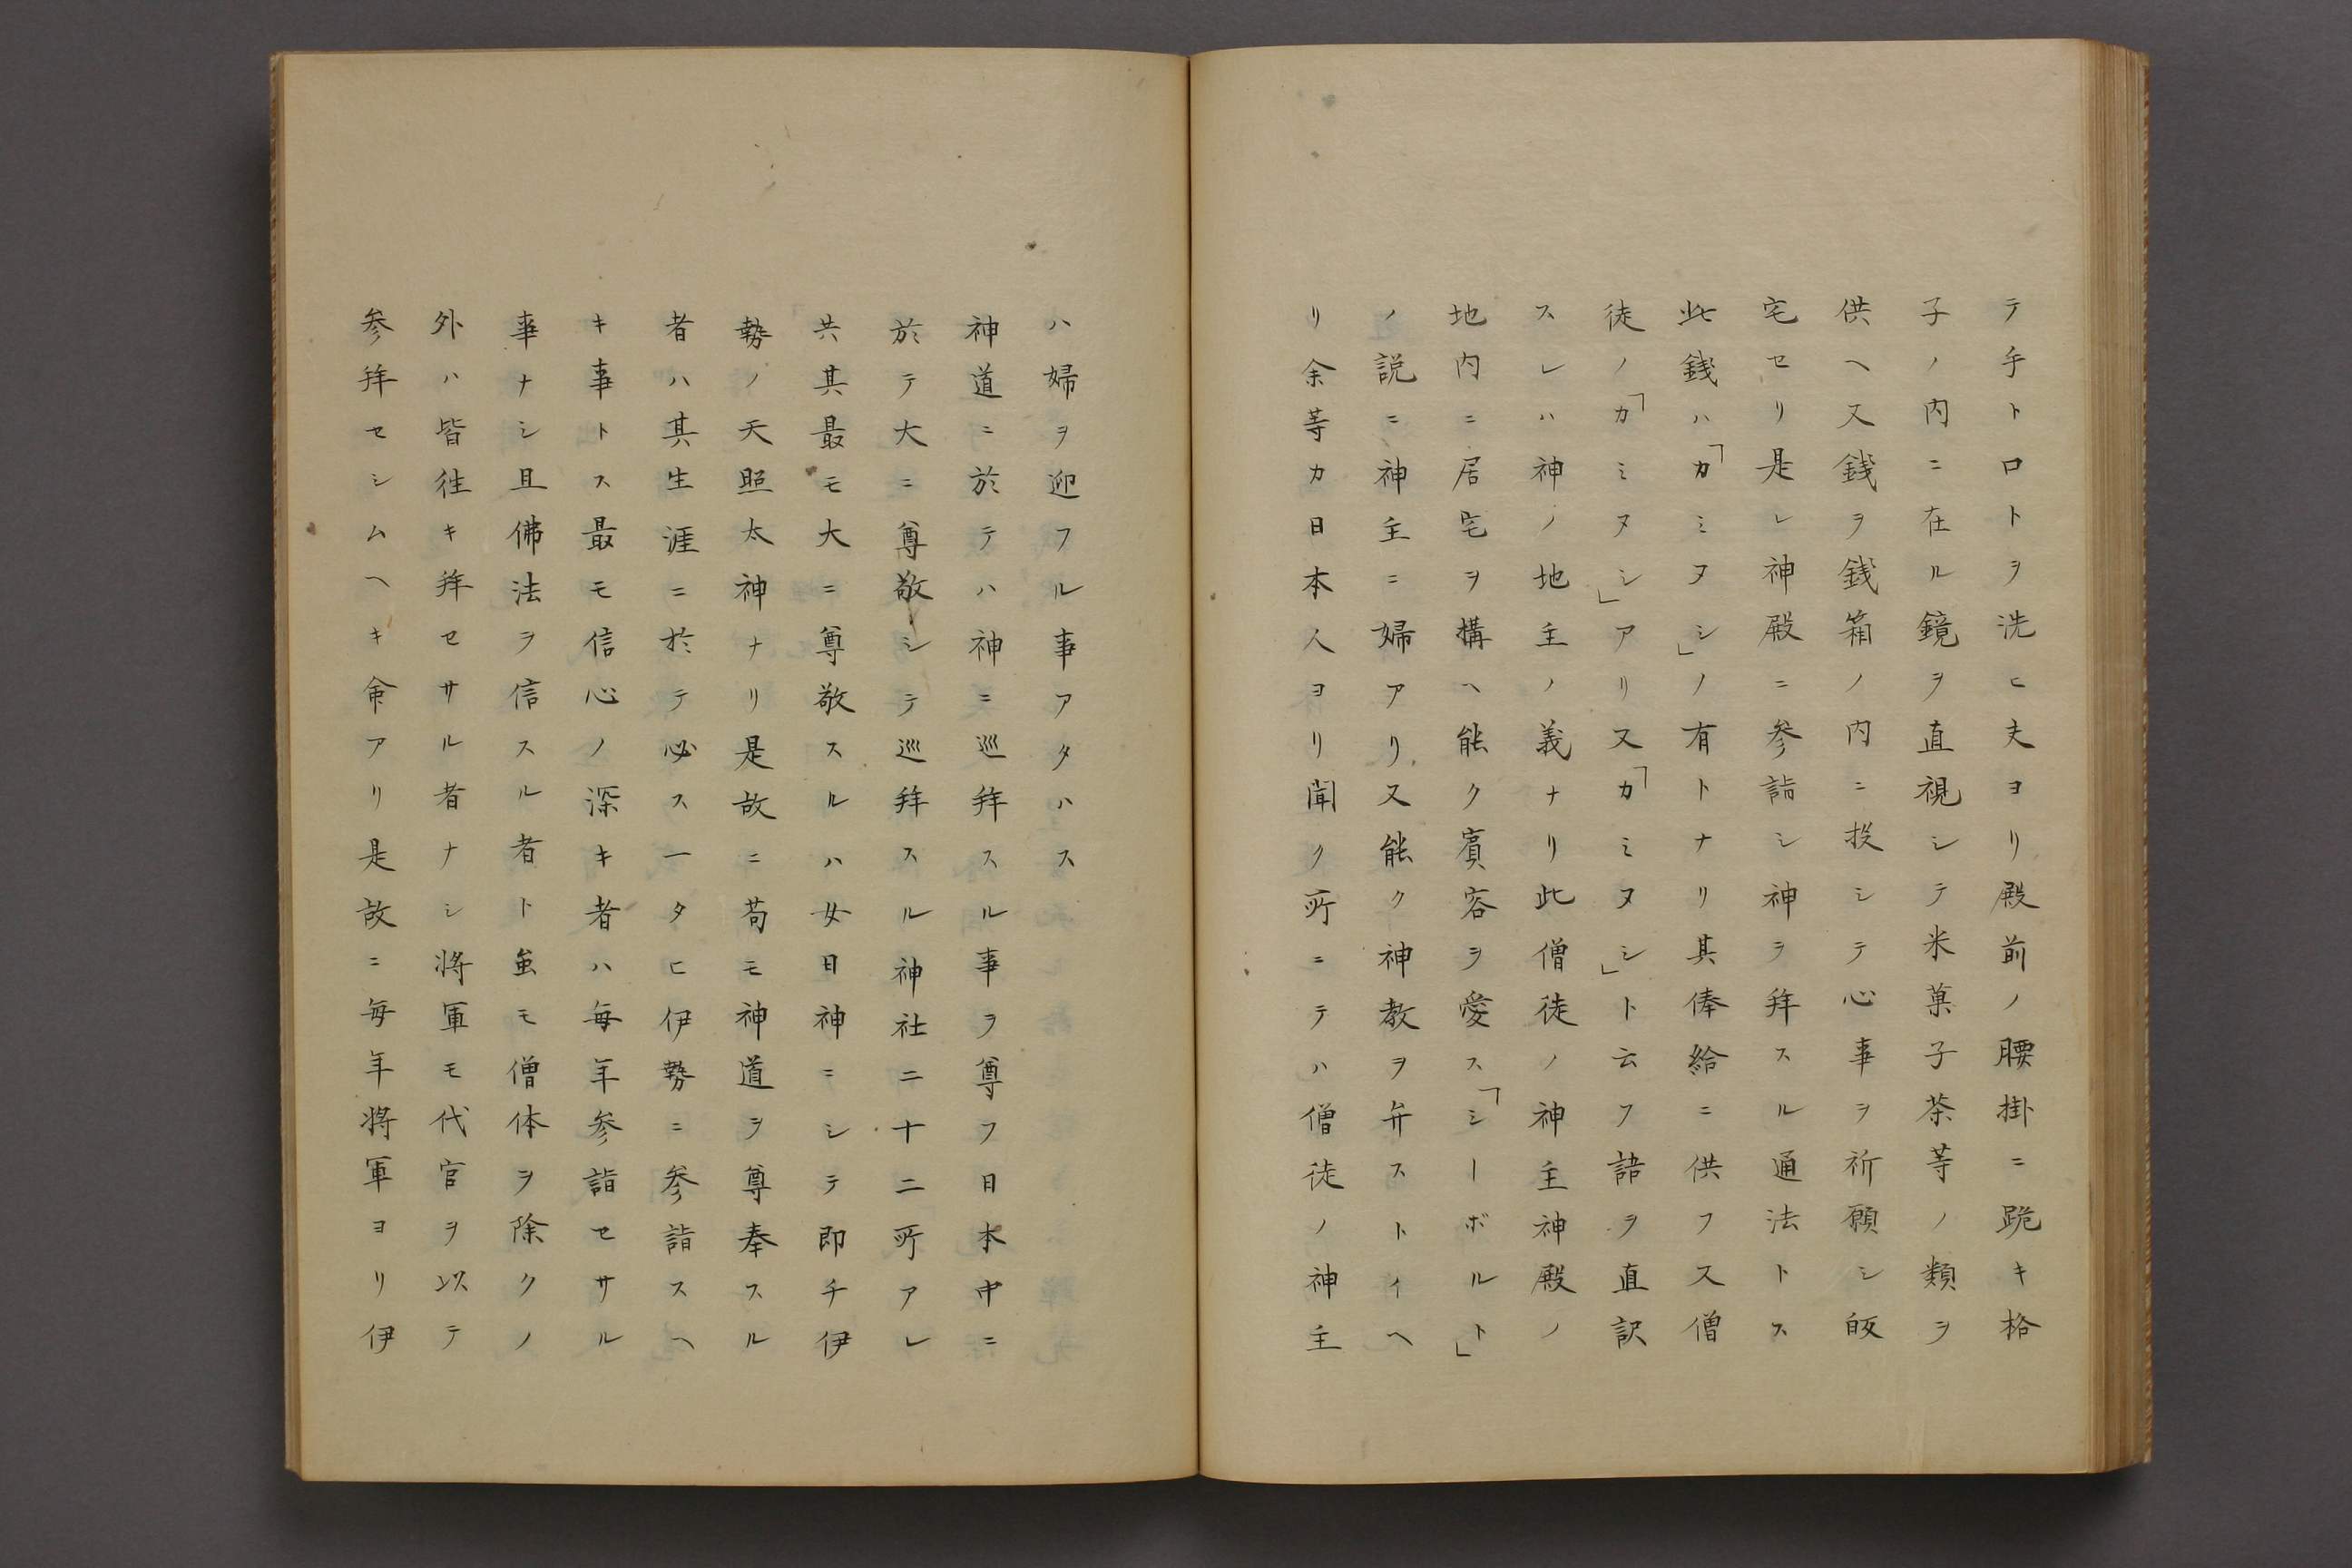 テ手ト口トヲ洗ヒ夫ヨリ殿前ノ腰掛ニ跪キ格
子ノ内ニ在ル鏡ヲ直視シテ米菓子茶等ノ類ヲ
供ヘ又銭ヲ銭箱ノ内ニ投シテ心事ヲ祈願シ皈
宅セリ是レ神殿ニ参詣シ神ヲ拜スル通法トス
此銭ハ「カミヌシ」ノ有トナリ其俸給ニ供フス僧
徒ノ「カミヌシ」アリ又「カミヌシ」ト云フ語ヲ直訳
スレハ神ノ地主ノ義ナリ此僧徒ノ神主神殿ノ
地内ニ居宅ヲ構ヘ能ク賓容ヲ愛ス「シーボルト」
ノ説ニ神主ニ婦アリ又能ク神教ヲ弁ストイヘ
リ余等カ日本人ヨリ聞ク所ニテハ僧徒ノ神主
ハ婦ヲ迎フル事アタハス
神道ニ於テハ神ニ巡拜スル事ヲ尊フ日本中ニ
於テ大ニ尊敬シテ巡拜スル神社二十二所アレ
共其最モ大ニ尊敬スルハ女日神ニシテ即チ伊
勢ノ天照太神ナリ是故ニ苟モ神道ヲ尊奉スル
者ハ其生涯ニ於テ必ス一タヒ伊勢ニ参詣スヘ
キ事トス最モ信心ノ深キ者ハ毎年参詣セサル
事ナシ且佛法ヲ信スル者ト虽モ僧体ヲ除クノ
外ハ皆徃キ拜セサル者ナシ将軍モ代官ヲ以テ
参拜セシムヘキ命アリ是故ニ毎年将軍ヨリ伊